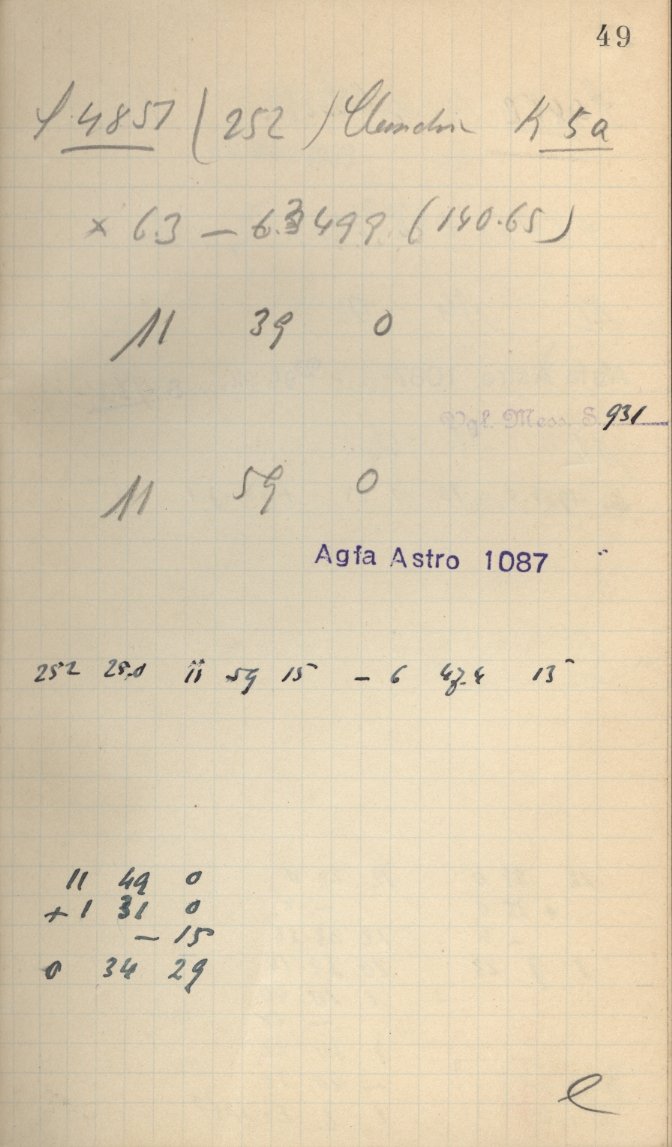 49
4857 (252) Clementina K 5a
× 63 — 6.3499 (140.65)
11 39 0
Vgl. Mess. S. 931
11 59 0
Agfa Astro 1087
252 25.0 11 59 15 - 6 47.4 13
11 49 0
+ 1 31 0
- 15
0 34 29